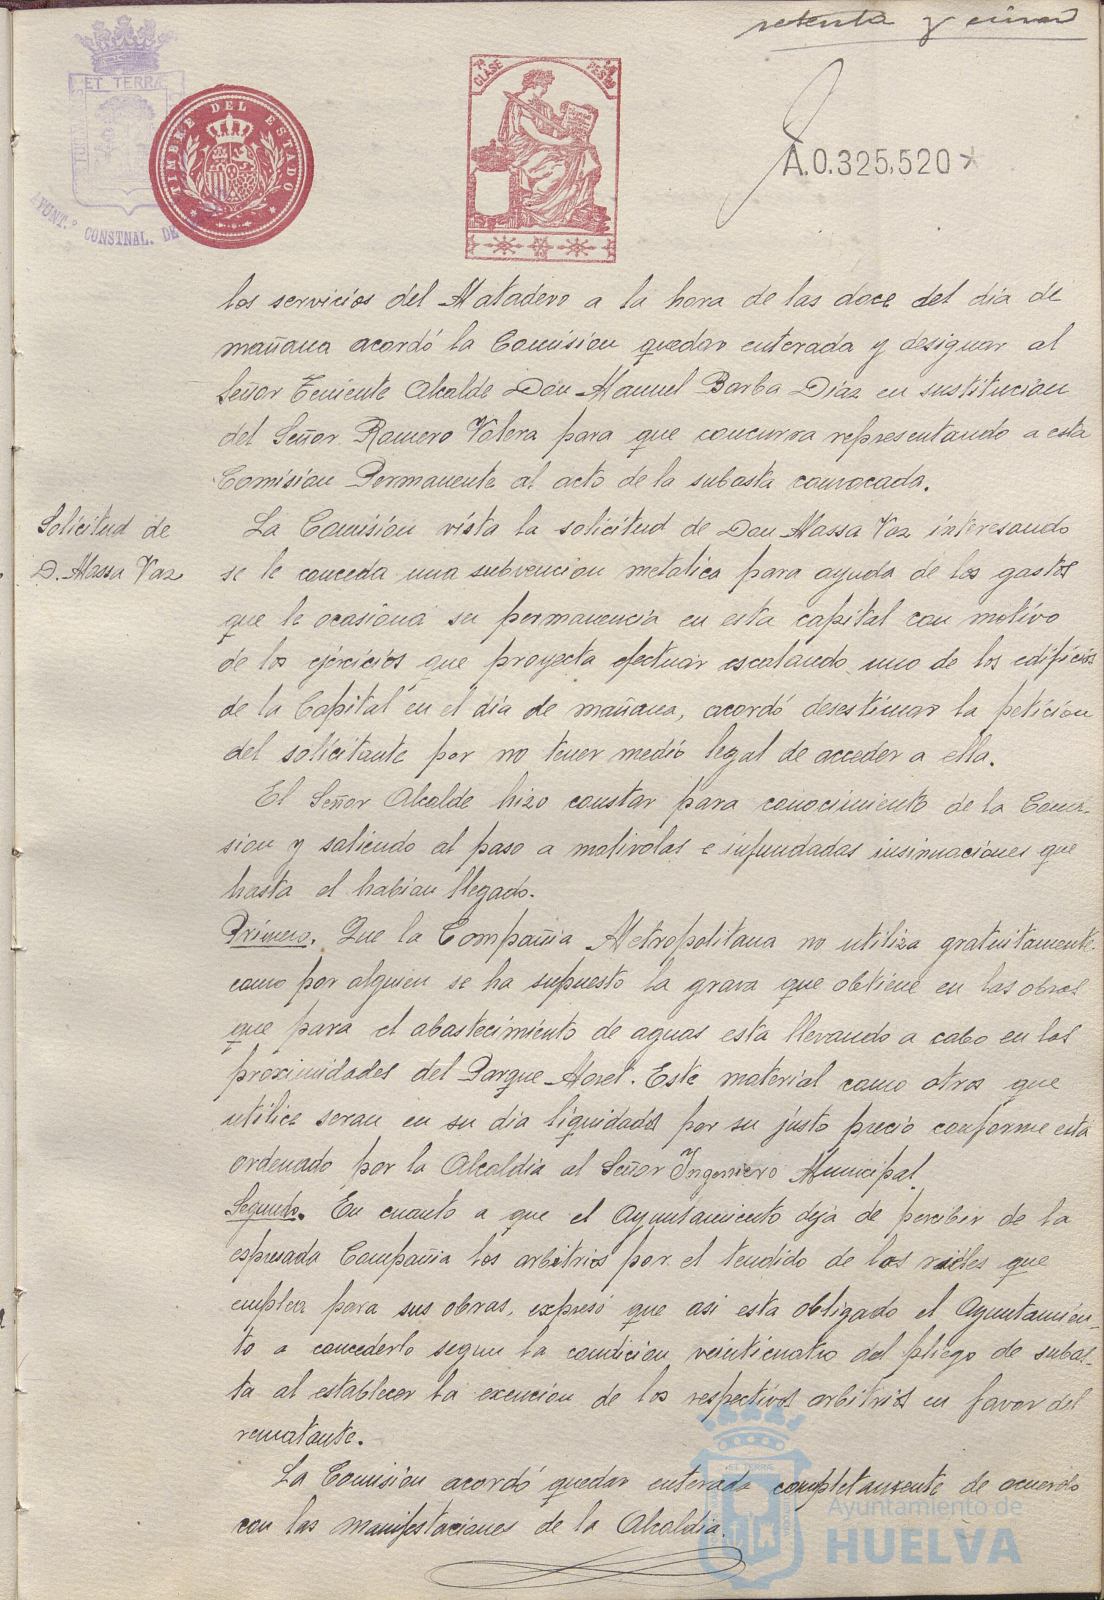 setenta y cinco
ET TERRÆ
AYUNT.º CONSTNAL. DE
TIMBRE DEL ESTADO
7ª CLASE
A.0.325,520
los servicios del Matadero a la hora de las doce del dia de
mañana acordó la Comision quedar enterada y designar al
Señor Teniente Alcalde Don Manuel Barba Diaz en sustitucion
del Señor Romero Valera para que concurra representando a esta
Comision Permanente al acto de la subasta convocada.
Solicitud de
D. Massa Vaz
La Comisión vista la solicitud de Don Massa Vaz interesando
se le conceda una subvencion metalica para ayuda de los gastos
que le ocasiona su permanencia en esta capital con motivo
de los ejercicios que proyecta efectuar escalando uno de los edificios
de la Capital en el dia de mañana, acordó desestimar la peticion
del solicitante por no tener medio legal de acceder a ella.
El Señor Alcalde hizo constar para conocimiento de la Comi-
sion y saliendo al paso a malivolas e infundadas insinuaciones que
hasta el habian llegado.
Primero. Que la Compañia Metropolitana no utiliza gratuitamente
como por alguien se ha supuesto la grava que obtiene en las obras
que para el abastecimiento de aguas esta llevando a cabo en las
proximidades del Parque Moret. Este material como otros que
utilice seran en su dia liquidados por su justo precio conforme está
ordenado por la Alcaldia al Señor Ingeniero Municipal.
Segundo. En cuanto a que el Ayuntamiento deja de percibir de la
espresada Compañia los arbitrios por el tendido de los railes que
emplea para sus obras, expresó que asi esta obligado el Ayuntamien-
to a concederlo segun la condicion veinticuatro del pliego de subas-
ta al establecer la exencion de los respectivos arbitrios en favor del
rematante.
La Comisión acordó quedar enterada completamente de acuerdo
con las manifestaciones de la Alcaldia.
Ayuntamiento de
HUELVA